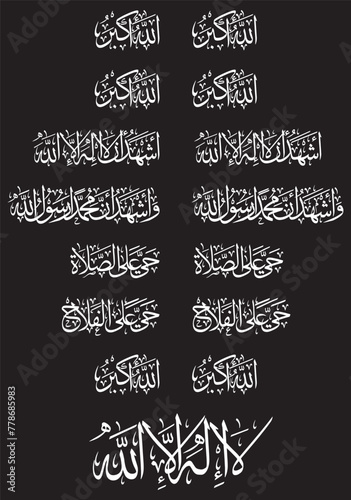 اللهُ أَكْبَرُ اللهُ أَكْبَرُ
اللهُ أَكْبَرُ اللهُ أَكْبَرُ
أَشْهَدُ أَنْ لَا إِلٰهَ إِلَّا اللهُ أَشْهَدُ أَنْ لَا إِلٰهَ إِلَّا اللهُ
وَأَشْهَدُ أَنَّ مُحَمَّدًا رَسُولُ اللهِ وَأَشْهَدُ أَنَّ مُحَمَّدًا رَسُولُ اللهِ
حَيَّ عَلَى الصَّلَاةِ حَيَّ عَلَى الصَّلَاةِ
حَيَّ عَلَى الْفَلَاحِ حَيَّ عَلَى الْفَلَاحِ
اللهُ أَكْبَرُ اللهُ أَكْبَرُ
لَا إِلٰهَ إِلَّا اللهُ
Adobe Stock | #778685983
Adobe Stock